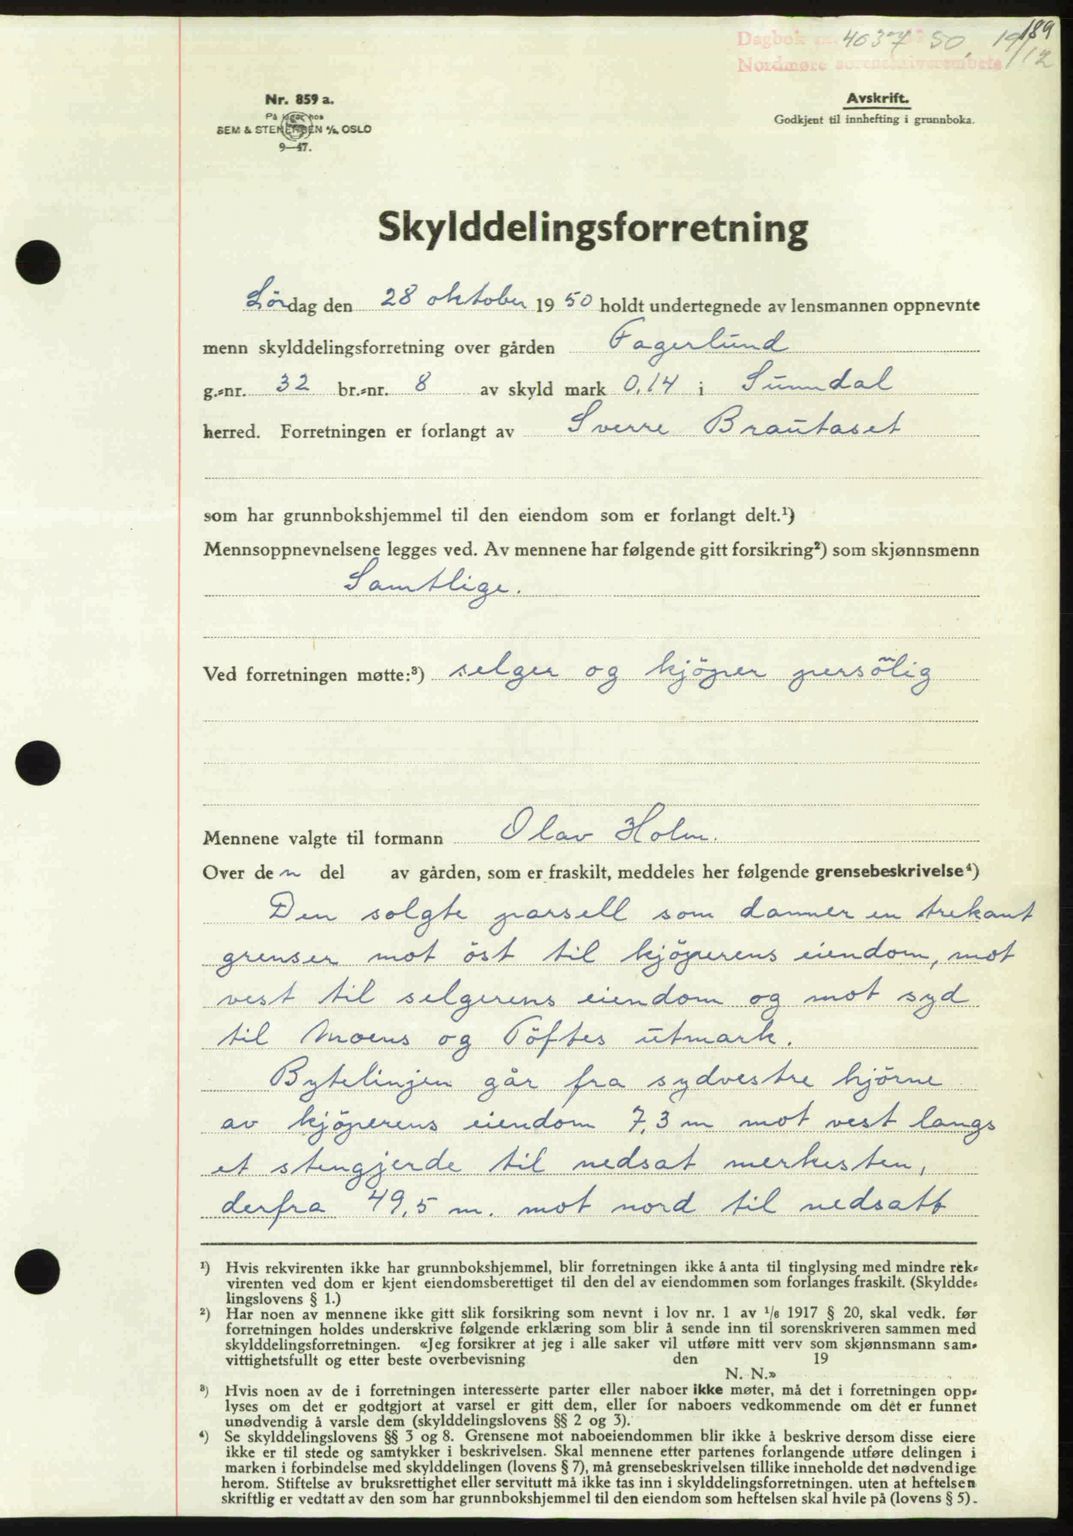 189
Dagbok nr. 4037 50, 19/12
Nordmøre sorenskriverembete
Nr. 859 a.
På lager hos
SEM & STENERSEN A/S, OSLO
9—47.
Avskrift.
Godkjent til innhefting i grunnboka.
Skylddelingsforretning
Lördag den 28 oktober 1950 holdt undertegnede av lensmannen oppnevnte
menn skylddelingsforretning over gården Fagerlund
g.-nr. 32 br.-nr. 8 av skyld mark 0,14 i Sunndal
herred. Forretningen er forlangt av Sverre Brautaset
som har grunnbokshjemmel til den eiendom som er forlangt delt.¹)
Mennsoppnevnelsene legges ved. Av mennene har følgende gitt forsikring²) som skjønnsmenn
Samtlige.
Ved forretningen møtte:³) selger og kjöper persönlig
Mennene valgte til formann Olav Holm.
Over den del av gården, som er fraskilt, meddeles her følgende grensebeskrivelse⁴)
Den solgte parsell som danner en trekant
grenser mot öst til kjöperens eiendom, mot
vest til selgerens eiendom og mot syd
til Moens og Töftes utmark.
Bytelinjen går fra sydvestre hjörne
av kjöperens eiendom 7,3 m mot vest langs
et stengjerde til nedsat merkesten,
derfra 49,5 m. mot nord til nedsatt
¹) Hvis rekvirenten ikke har grunnbokshjemmel, blir forretningen ikke å anta til tinglysing med mindre rek-
virenten ved dom er kjent eiendomsberettiget til den del av eiendommen som forlanges fraskilt. (Skyldde-
lingslovens § 1.)
²) Har noen av mennene ikke gitt slik forsikring som nevnt i lov nr. 1 av ¹/₆ 1917 § 20, skal vedk. før
forretningen holdes underskrive følgende erklæring som blir å sende inn til sorenskriveren sammen med
skylddelingsforretningen. «Jeg forsikrer at jeg i alle saker vil utføre mitt verv som skjønnsmann sam-
vittighetsfullt og etter beste overbevisning den 19
N. N.»
³) Hvis noen av de i forretningen interesserte parter eller naboer ikke møter, må det i forretningen opp-
lyses om det er godtgjort at varsel er gitt dem, eller for naboers vedkommende om det er funnet
unødvendig å varsle dem (skylddelingslovens §§ 2 og 3).
⁴) Se skylddelingslovens §§ 3 og 8. Grensene mot naboeiendommen blir ikke å beskrive dersom disse eiere
ikke er til stede og samtykker i beskrivelsen. Skal mennene etter partenes forlangende utføre delingen i
marken i forbindelse med skylddelingen (lovens § 7), må grensebeskrivelsen tillike inneholde det nødvendige
herom. Stiftelse av bruksrettighet eller servitutt må ikke tas inn i skylddelingsforretningen. uten at heftelsen
skriftlig er vedtatt av den som har grunnbokshjemmel til den eiendom som heftelsen skal hvile på (lovens § 5).